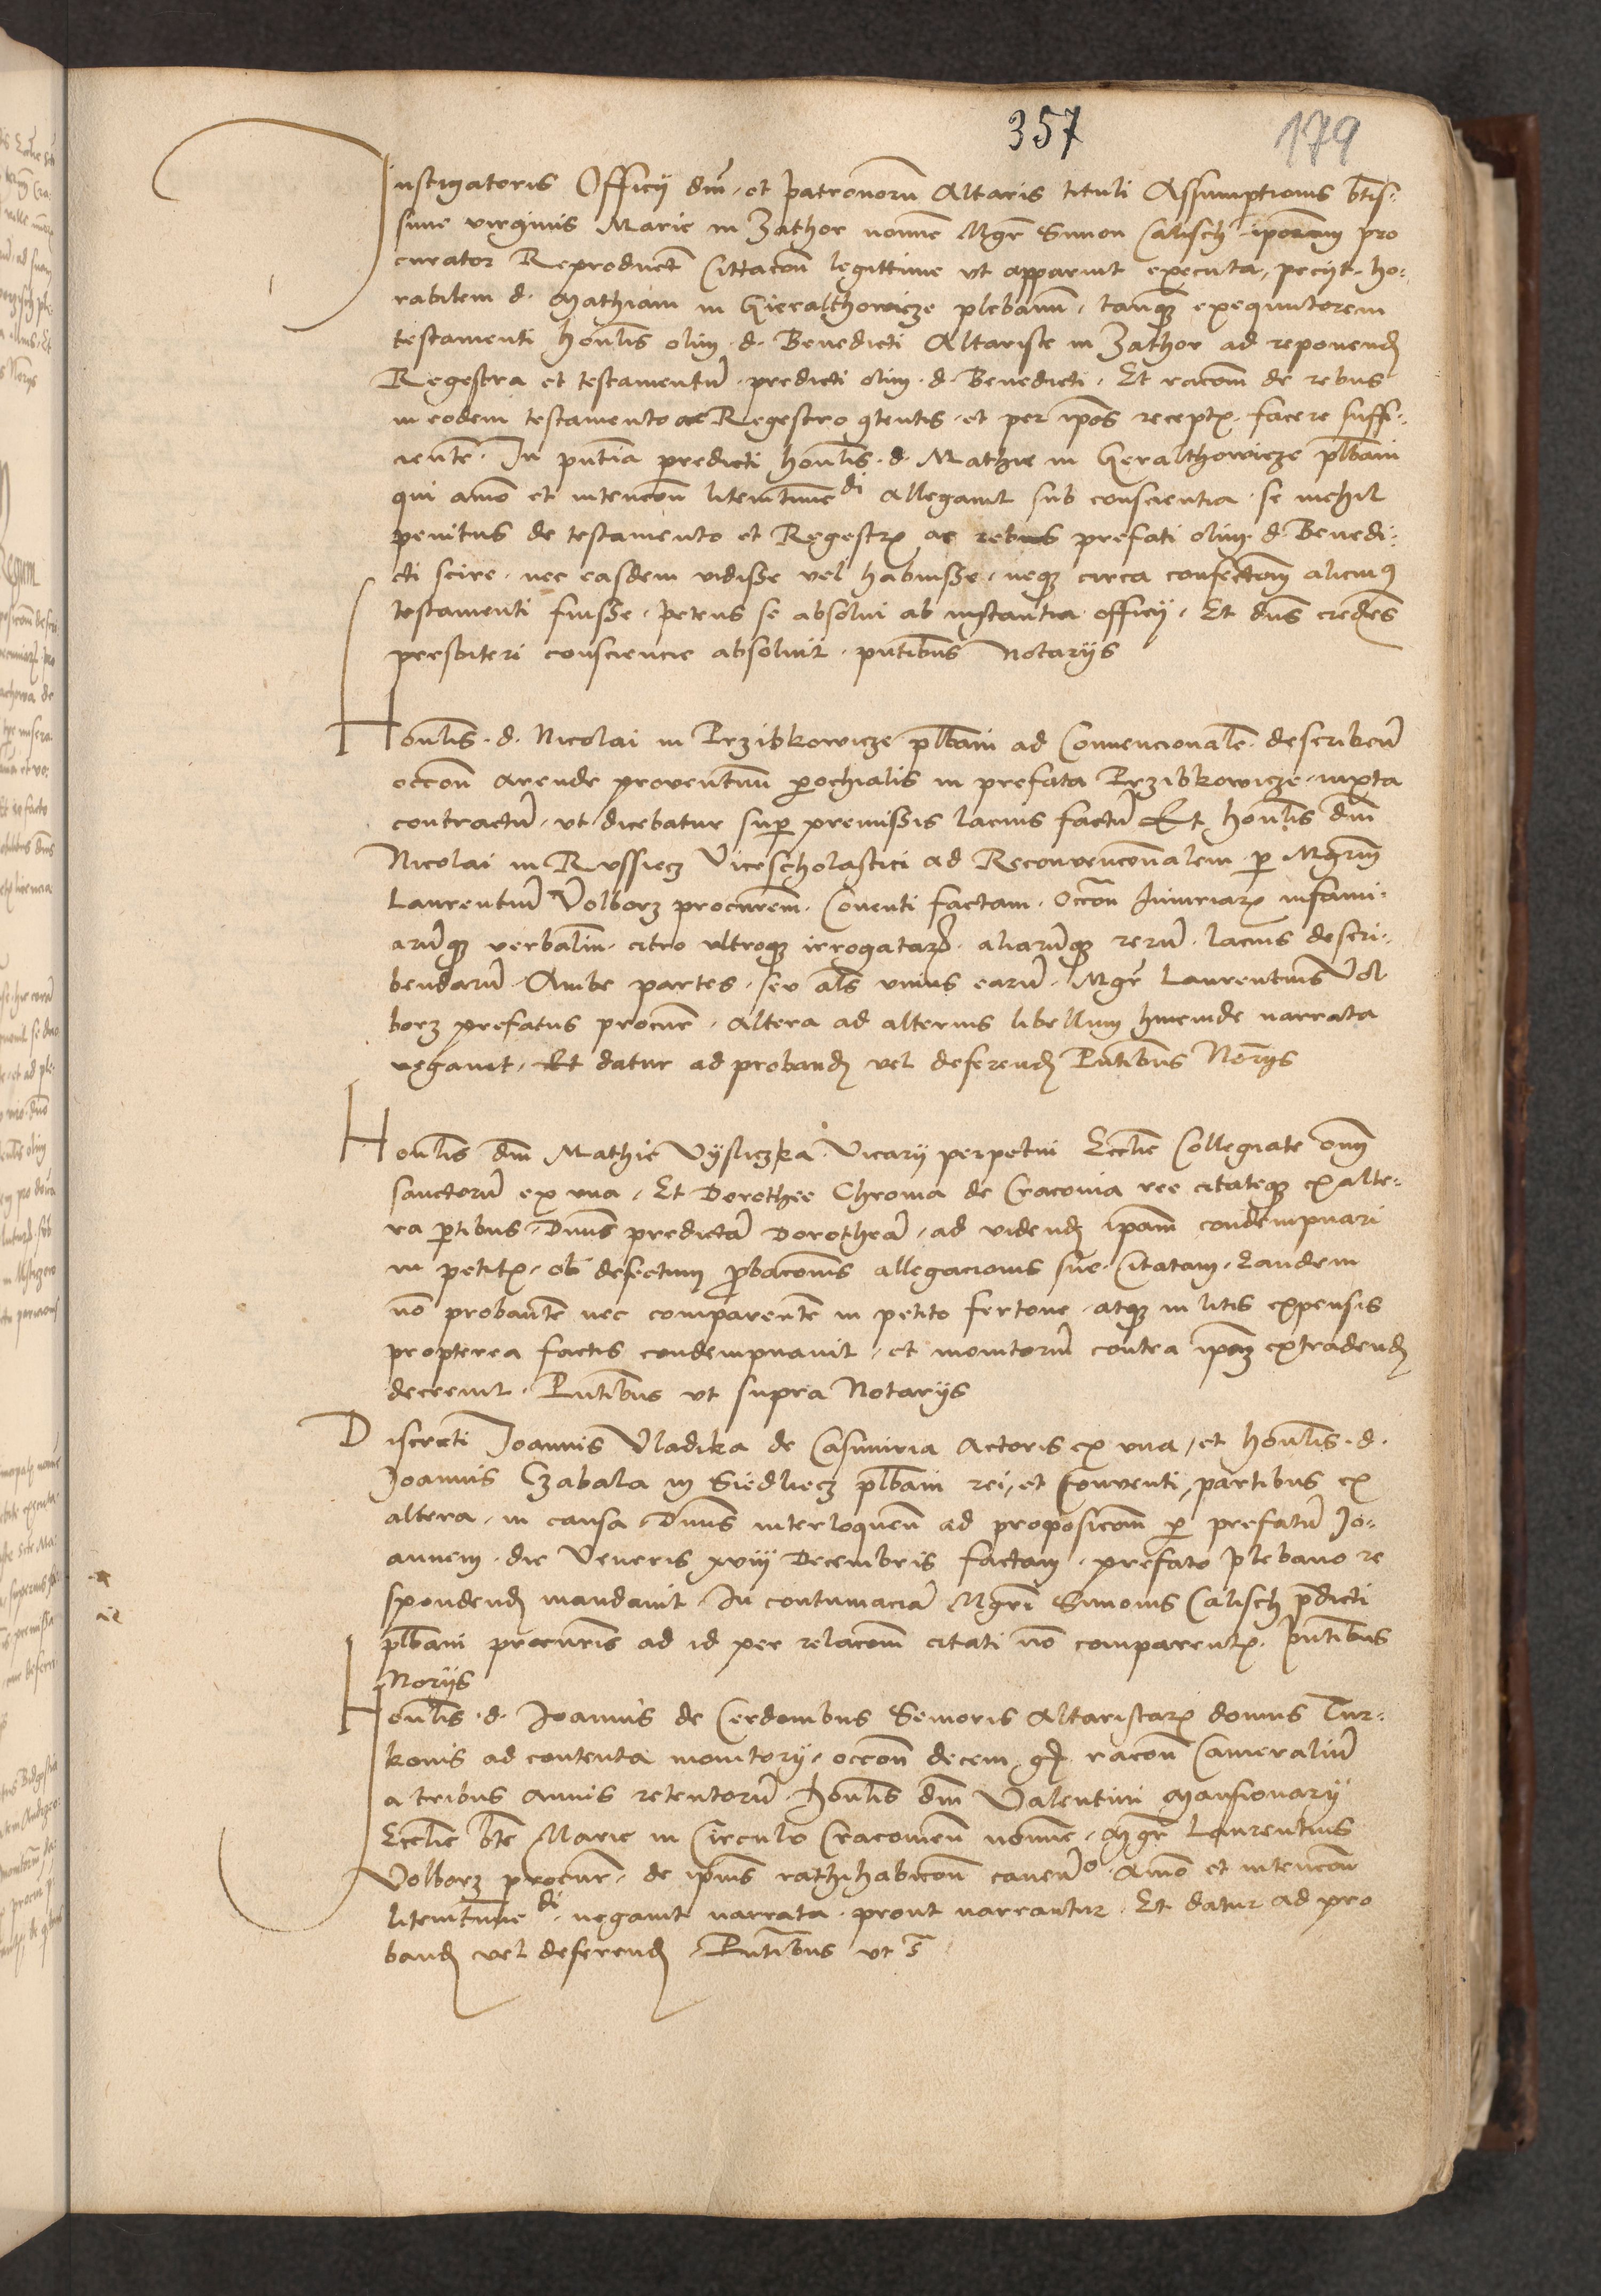 357
179
Instigatoris Officij dni et patronorum Altaris tituli Assumptionis btis-
sime virginis Marie in Zathor nomine Mgr Simon Calisch ipsorum pro
curator Reproducta Cittacōn legittime vt apparuit executa, pecijt ho-
rabilem d. Mathiam in Gieralthowicze plebanum, tanq exequutorem
testamenti honlis olim d. Benedicti Altariste in Zathor ad reponend
Regestra et testamentū predicti olim d. Benedicti. Et racōm de rebus
in eodem testamento ac Regestro contentis et per ipos receptis facere suffi-
cientē. In pntia predicti honlis d. Mathie in Geralthowicze plbani
qui amō et intencōn litem contestandi allegauit sub conscientia se nichil
penitus de testamento et Regestris ac rebus prefati olim d. Benedi-
cti scire, nec easdem vidisse vel habuisse, neq circa confectōm alicuius
testamenti fuisse, petens se absolui ab instantia officij. Et dns credens
presbiteri consciencie absoluit. pntibus Notarijs
Honlis d. Nicolai in Przibkowicze plbani ad Conuencionalē describen
occōn arende prouentuum parochialis in prefata Przibkowicze, iuxta
contractū, vt dicebatur super premissis lacius factū Et honlis dni
Nicolai in Russiecz Vicescholastici ad Reconuenconalem per Mgrm
Laurentiū Volborz procurem Conuenti factam, Occōn Iniuriarum infami-
arūq verbaliū citro vltroq irrogatarum, aliarūq rerū lacius descri-
bendarū Ambe partes, seu als vnius earū, Mgr Laurentius Vol
borz prefatus procur, altera ad alterius libellum hincinde narrata
negauit, Et datur ad proband vel deferend Pntibus Norijs
Honlis dni Mathie Vysliczka Vicarij perpetui Ecclie Collegiate omm
sanctorū ex vna, Et Dorothee Chroma de Cracouia ree citateq ex alte-
ra partibus, Dnus predictā Dorotheā, ad videnď ipam condempnari
in petitis, ob defectum probacōnis allegacionis sue Citatam, Eandem
nō probantē nec comparentē in petito fertone, atq in litis expensis
propterea factis condempnauit, et monitoriū contra ipam extradend
decreuit. Pntibus vt supra Notarijs
Discreti Joannis Vladika de Casimiria Actoris ex vna, et honlis d.
Joannis Czabala in Siedliecz plbani rei, et Conuenti, partibus ex
altera, in causa, Dnus interloquen ad proposicōm per prefatū Jo-
annem die Veneris xviij Decembris factam, prefato plebano re
spondend mandauit, In contumaciā Mgri Simonis Calisch predicti
plbani procuris ad id per relacōm citati nō comparentis. Pntibus
Norijs
Honlis d. Joannis de Cerdonibus Senioris Altaristarum domus Tur-
konis ad contenta monitorij, occōn decem gr racōn Cameraliū
a tribus annis retentorū honlis dni Valentini Mansionarij
Ecclie bte Marie in Circulo Cracouien nomine, Mgr Laurentius
Volborz procur, de ipius rathihabicōn cauendo. Amō et intencōn
litem contestandi, negauit narrata prout narrantur. Et datur ad pro
band vel deferend, Pntibus vt s